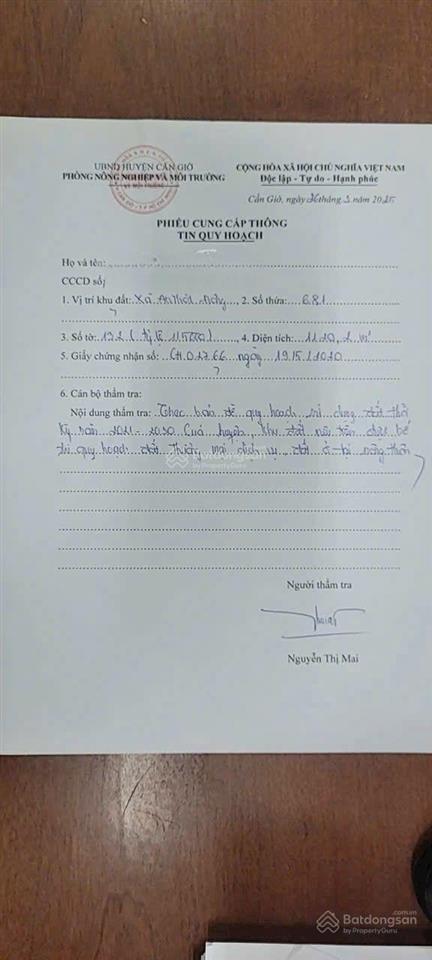 UBND HUYỆN CẦN GIỜ
PHÒNG NÔNG NGHIỆP VÀ MÔI TRƯỜNG
CỘNG HÒA XÃ HỘI CHỦ NGHĨA VIỆT NAM
Độc lập - Tự do - Hạnh phúc
Cần Giờ, ngày tháng 3 năm 2025
PHIẾU CUNG CẤP THÔNG
TIN QUY HOẠCH
Họ và tên:
CCCD số:
1. Vị trí khu đất: Xã An Thới Đông, 2. Số thửa: 681
3. Số tờ: 122 (tỷ lệ 1/5000), 4. Diện tích: 1120,2 m²
5. Giấy chứng nhận số: ngày 19/5/2020
6. Cán bộ thẩm tra:
Nội dung thẩm tra: Theo bản đồ quy hoạch sử dụng đất thời
kỳ năm 2021-2030 của huyện, khu đất nêu trên được bố
trí quy hoạch đất Thương mại dịch vụ, đất ở tại nông thôn
Batdongsan
by PropertyGuru
Người thẩm tra
Nguyễn Thị Mai
Batdongsan
.com.vn
by PropertyGuru